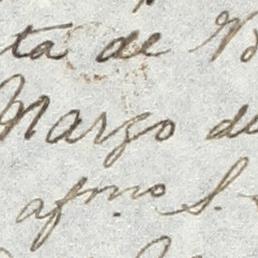 ta de B
Marzo de
afmo S.